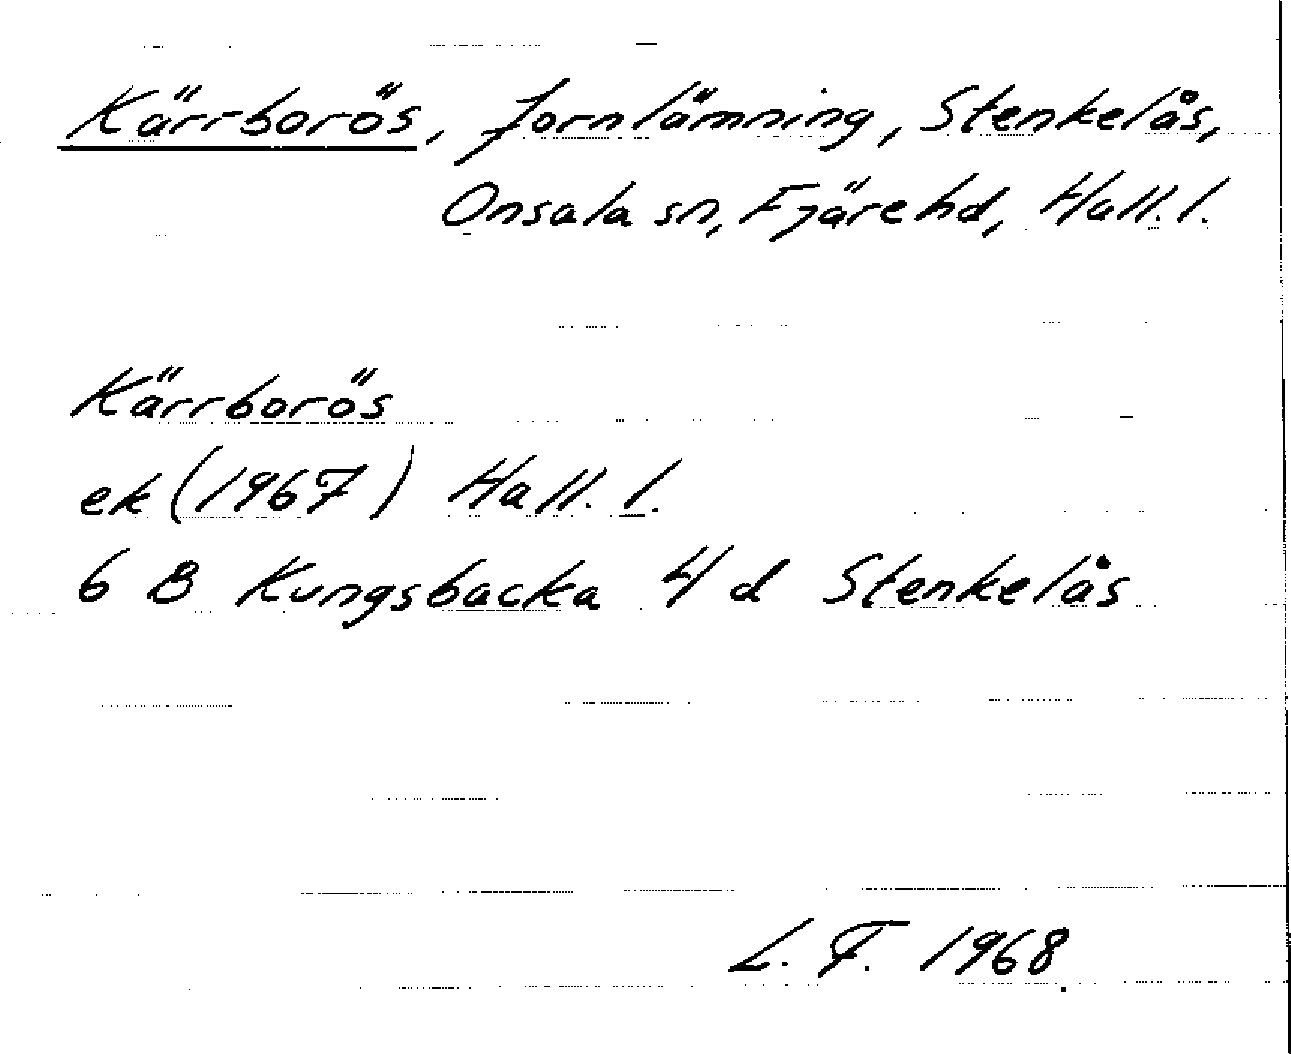 Kärrborös, fornlämning, Stenkelås,
Onsala sn, Fjäre hd, Hall. l.
Kärrborös
ek (1967) Hall. l.
6 B Kungsbacka 4 d Stenkelås
L. F. 1968